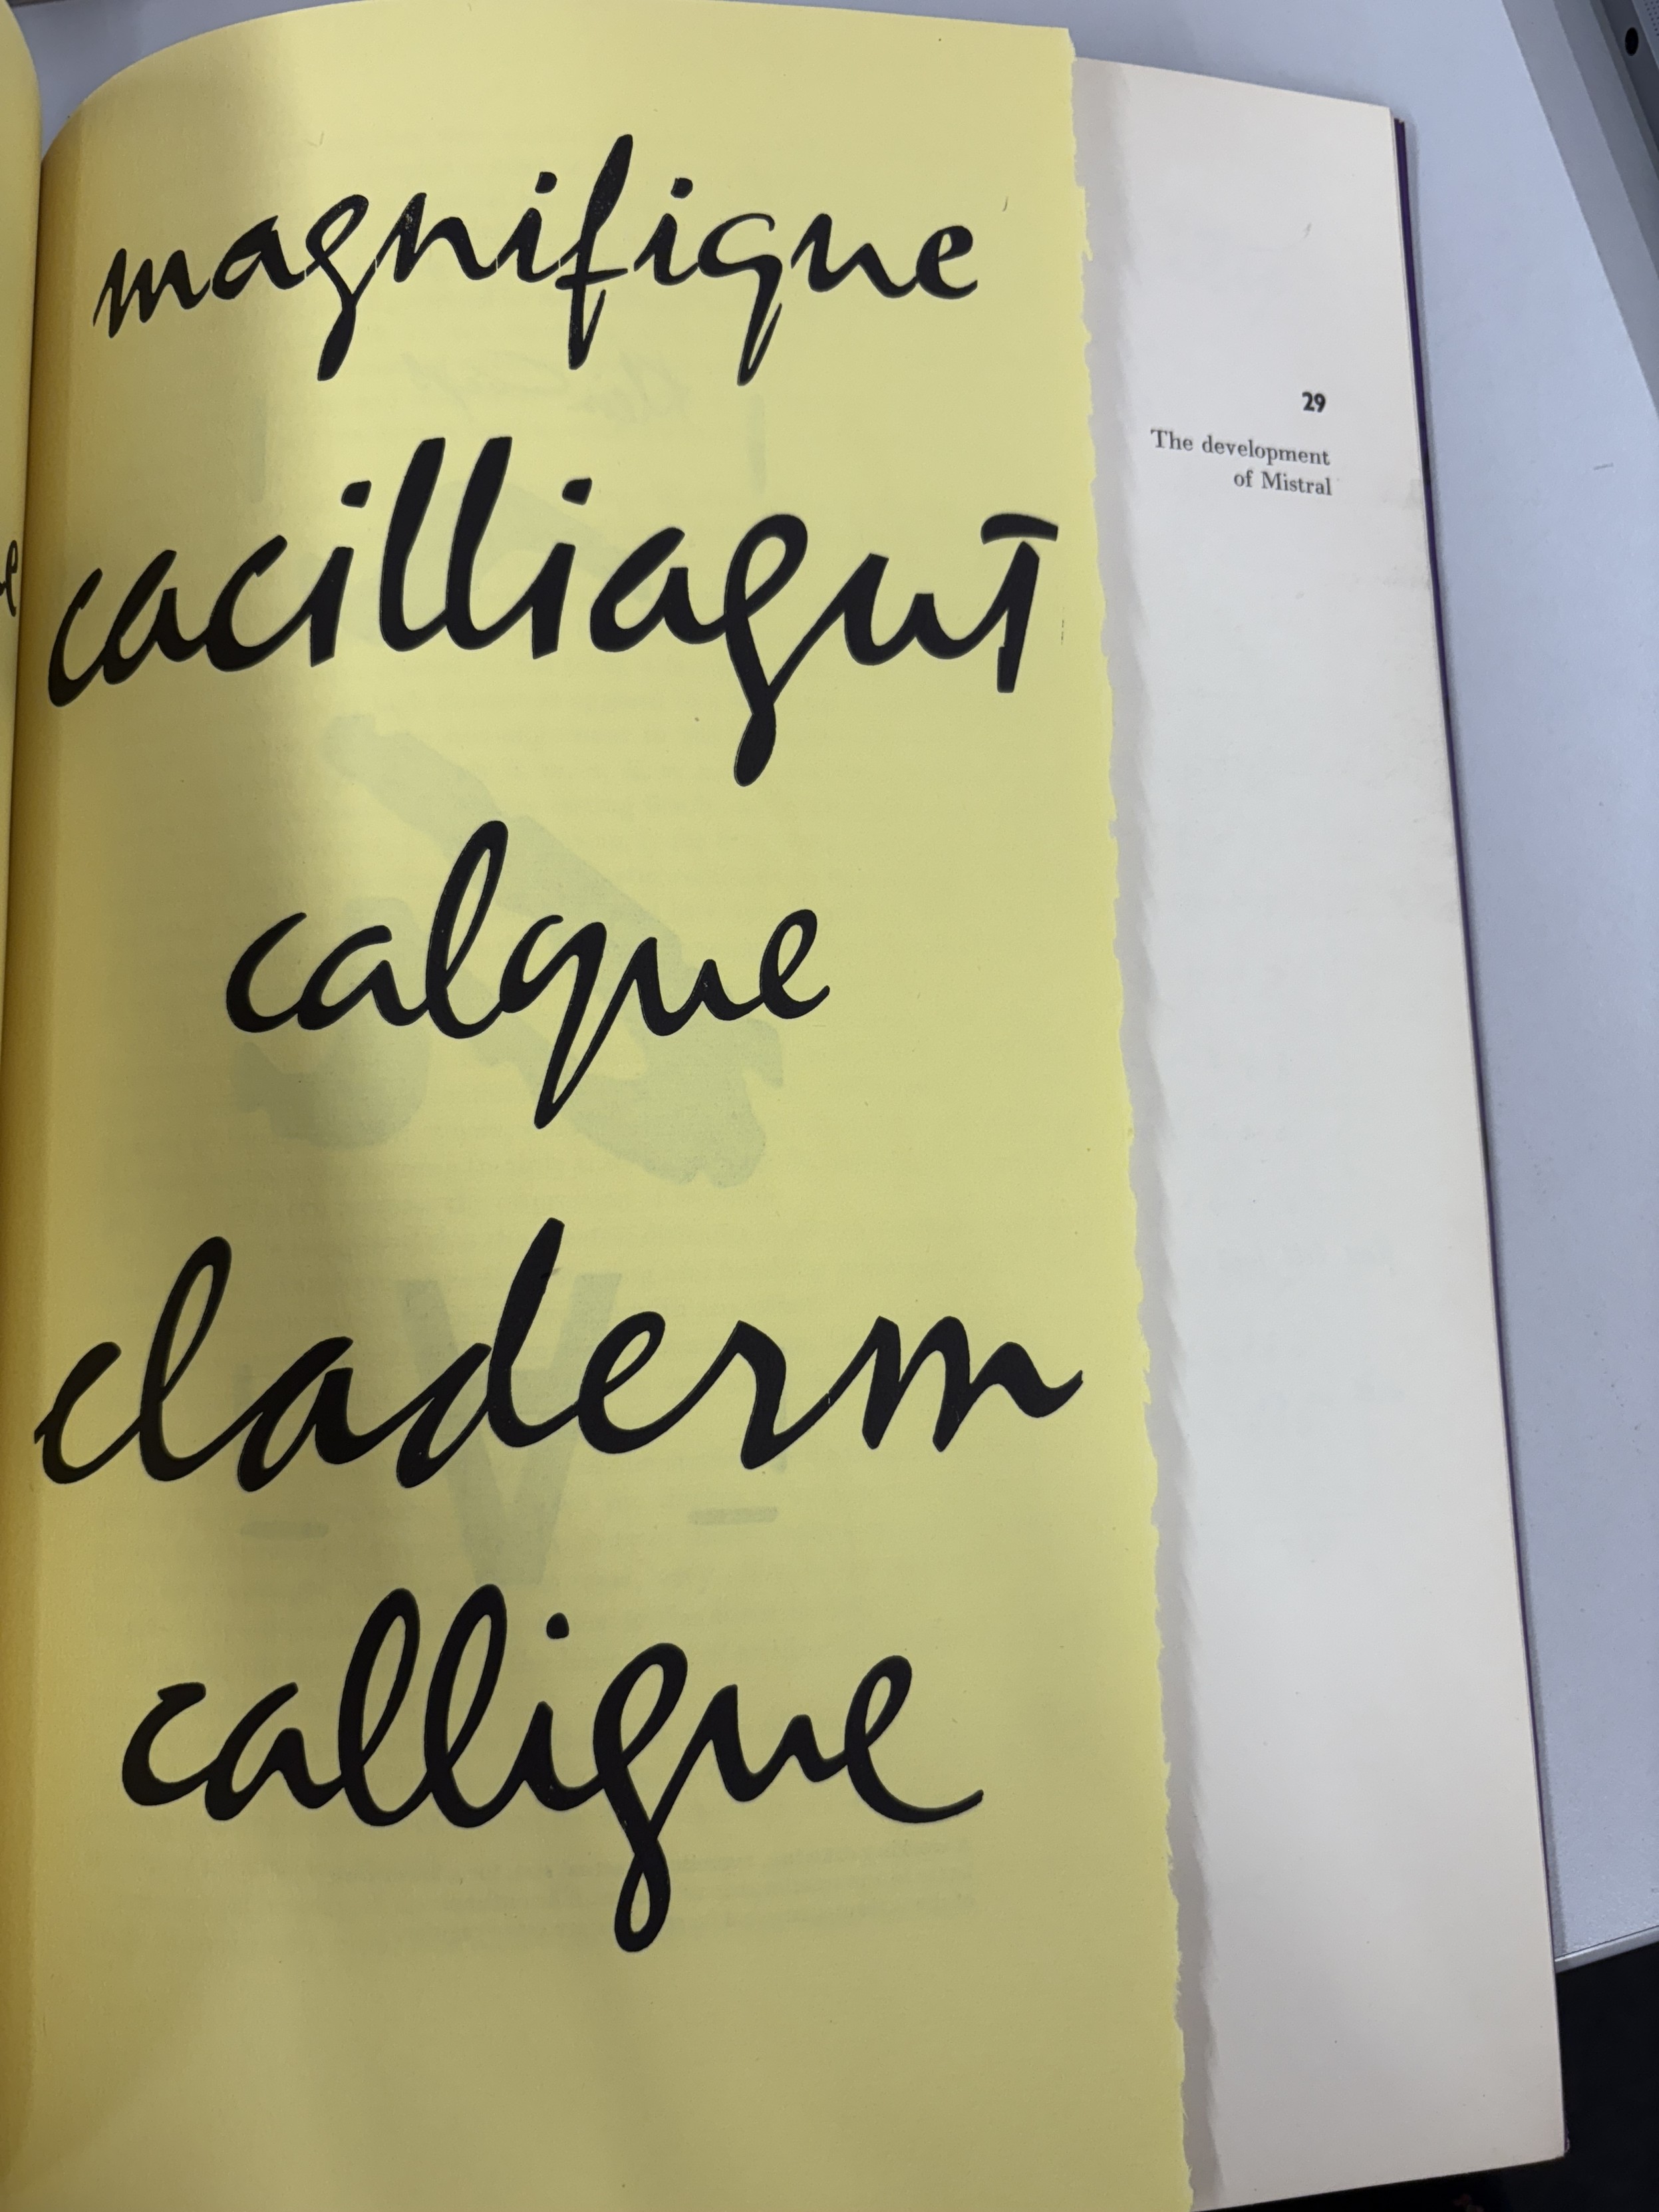 magnifique
cacilliagut
calque
claderm
calligue
29
The development
of Mistral